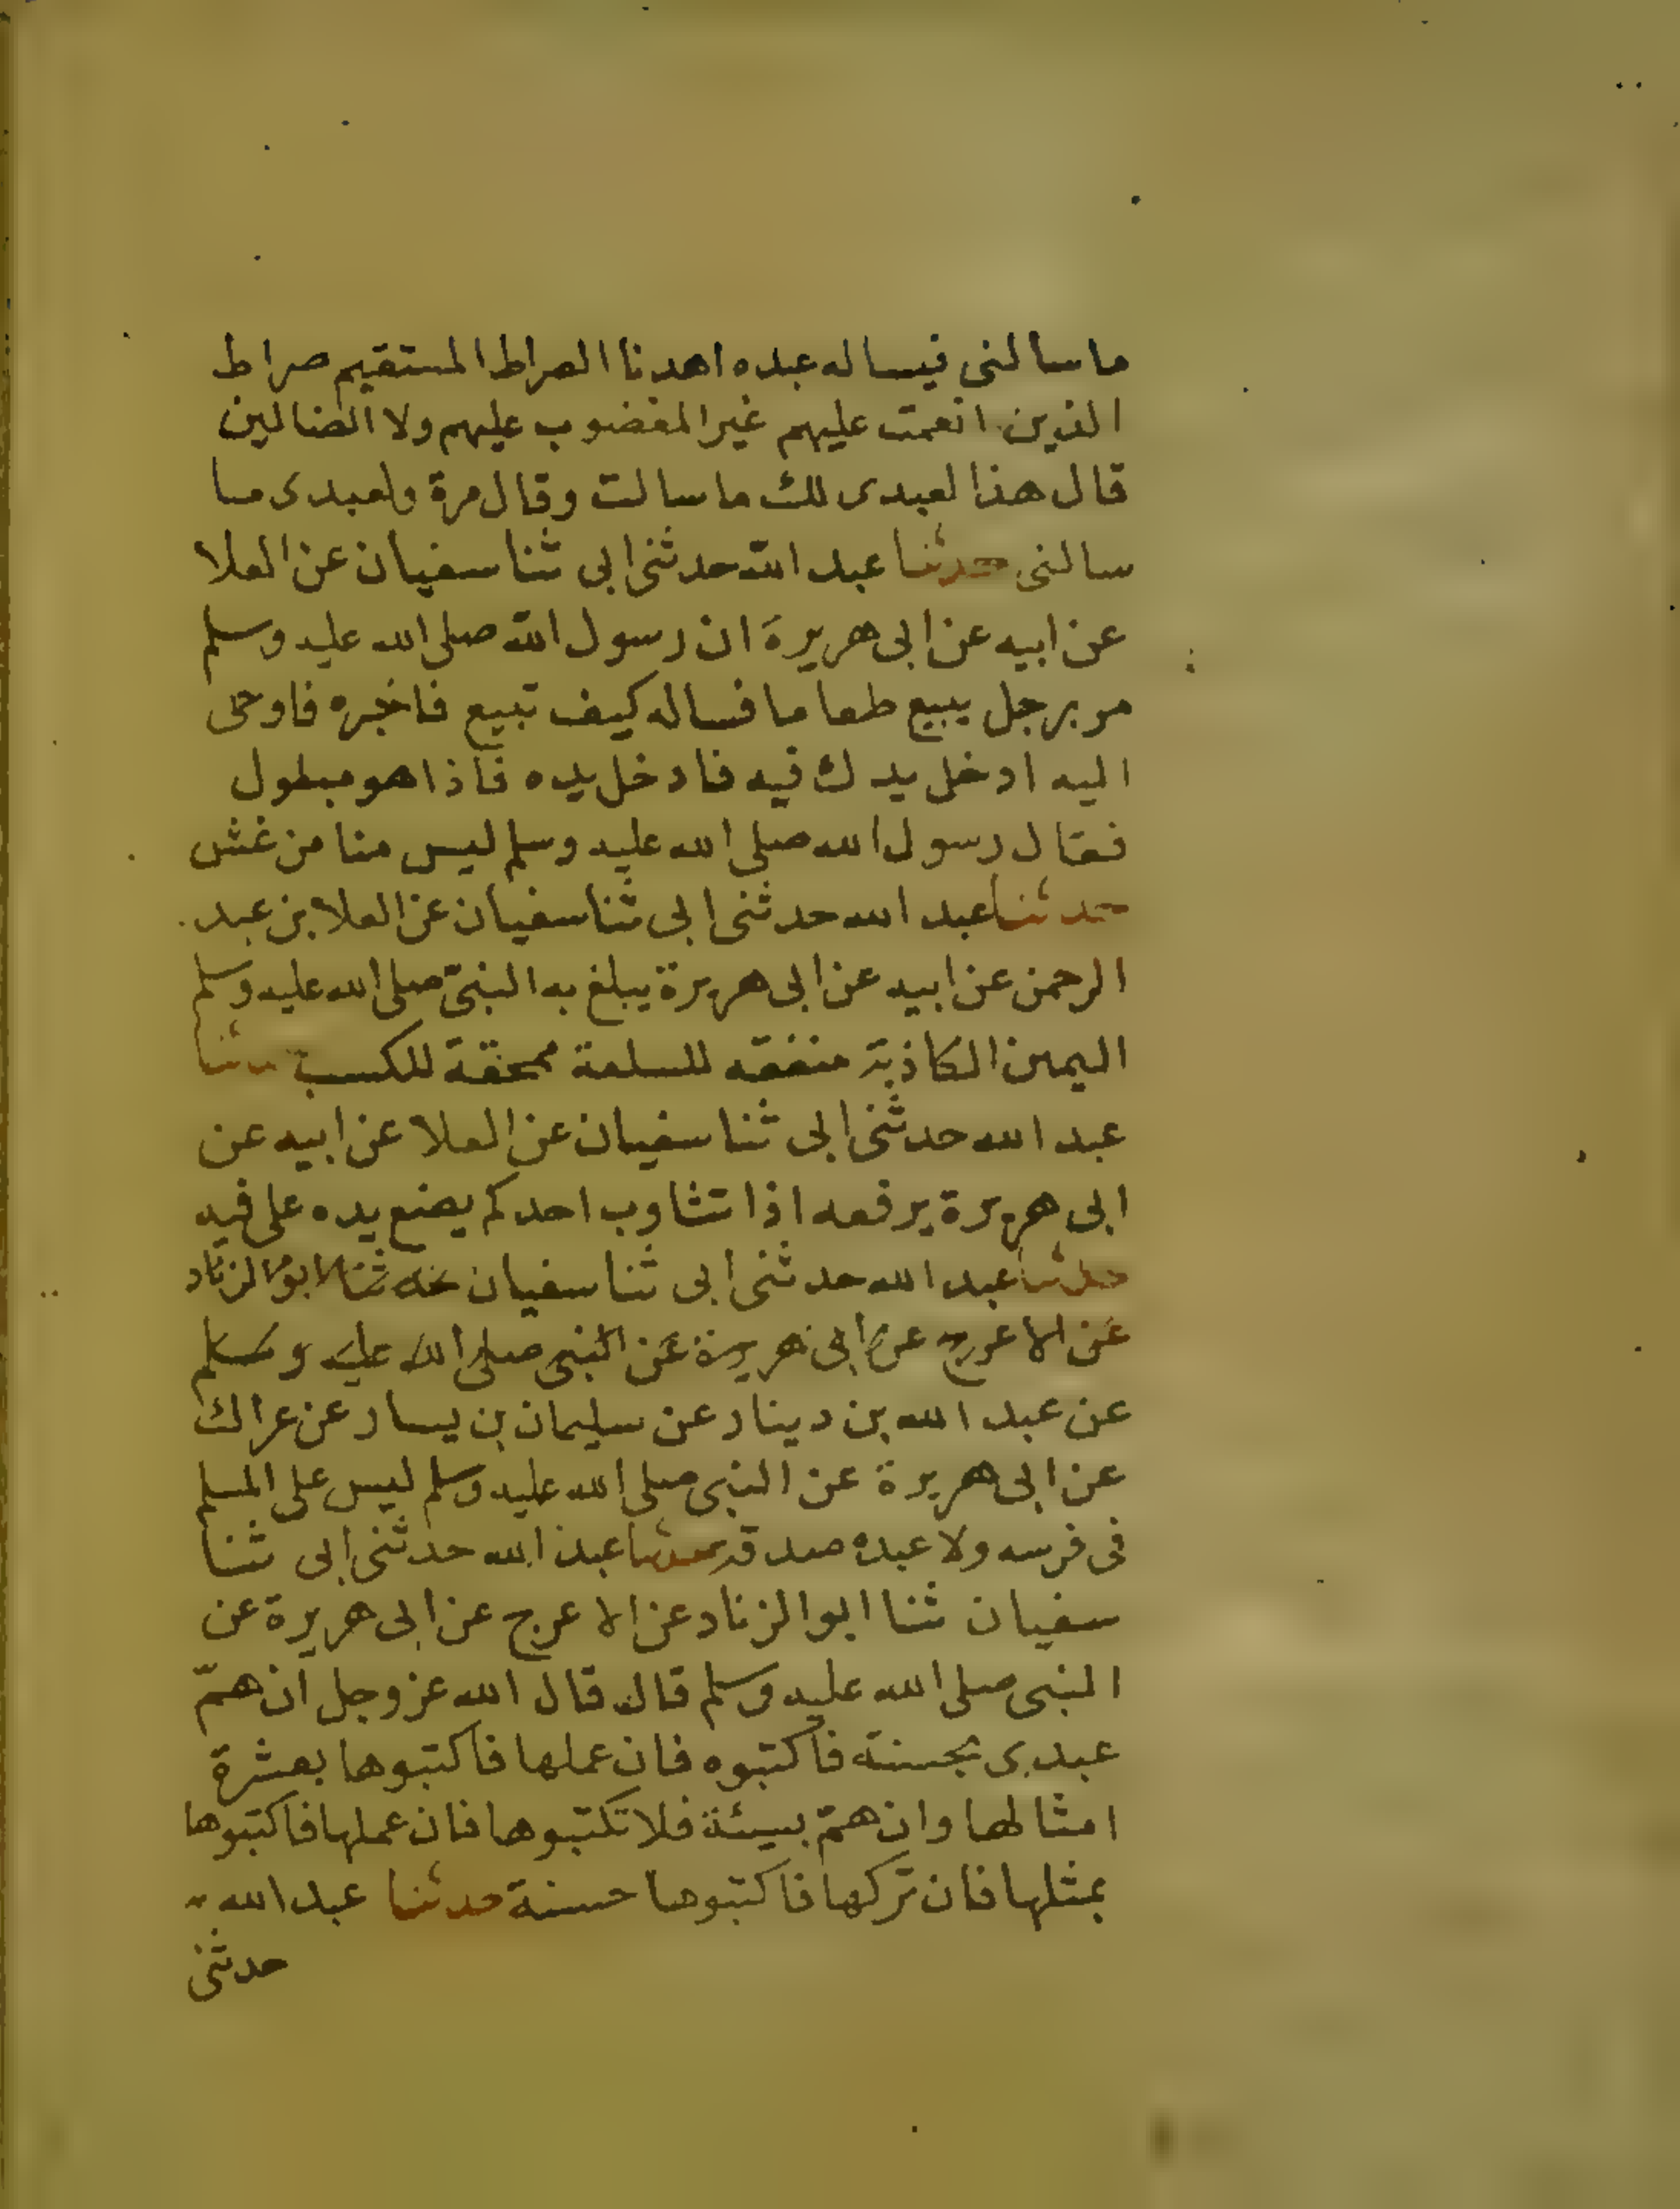 ما سالنى فيساله عبده اهدنا الصراط المستقيم صراط
الذين انعمت عليهم غير المغضوب عليهم ولا الضالين
قال هذا لعبدى لك ما سالت وقال مرة ولعبدى ما
سالنى حدثنا عبد الله حدثنى ابى ثنا سفيان عن العلا
عن ابيه عن ابى هريرة ان رسول الله صلى الله عليه وسلم
مر برجل يبيع طعاما فساله كيف تبيع فاخبره فاوحى
اليه ادخل يدك فيه فادخل يده فاذا هو مبلول
فقال رسول الله صلى الله عليه وسلم ليس منا من غش
حدثنا عبد الله حدثنى ابى ثنا سفيان عن العلا بن عبد
الرحمن عن ابيه عن ابى هريرة يبلغ به النبى صلى الله عليه وسلم
اليمين الكاذبة منفقه للسلعة ممحقة للكسب حدثنا
عبد الله حدثنى ابى ثنا سفيان عن العلا عن ابيه عن
ابى هريرة يرفعه اذا تثاوب احدكم يضع يده على فيه
حدثنا عبد الله حدثنى ابى ثنا سفيان ثنا ابو الزناد
عن الاعرج عن ابى هريرة عن النبى صلى الله عليه وسلم
عن عبد الله بن دينار عن سليمان بن يسار عن عراك
عن ابى هريرة عن النبى صلى الله عليه وسلم ليس على المسلم
فى فرسه ولا عبده صدقة حدثنا عبد الله حدثنى ابى ثنا
سفيان ثنا ابو الزناد عن الاعرج عن ابى هريرة عن
النبى صلى الله عليه وسلم قال قال الله عز وجل ان همّ
عبدى بحسنة فاكتبوه فان عملها فاكتبوها بعشرة
امثالها وان همّ بسيئة فلا تكتبوها فان عملها فاكتبوها
بمثلها فان تركها فاكتبوها حسنة حدثنا عبد الله
حدثنى